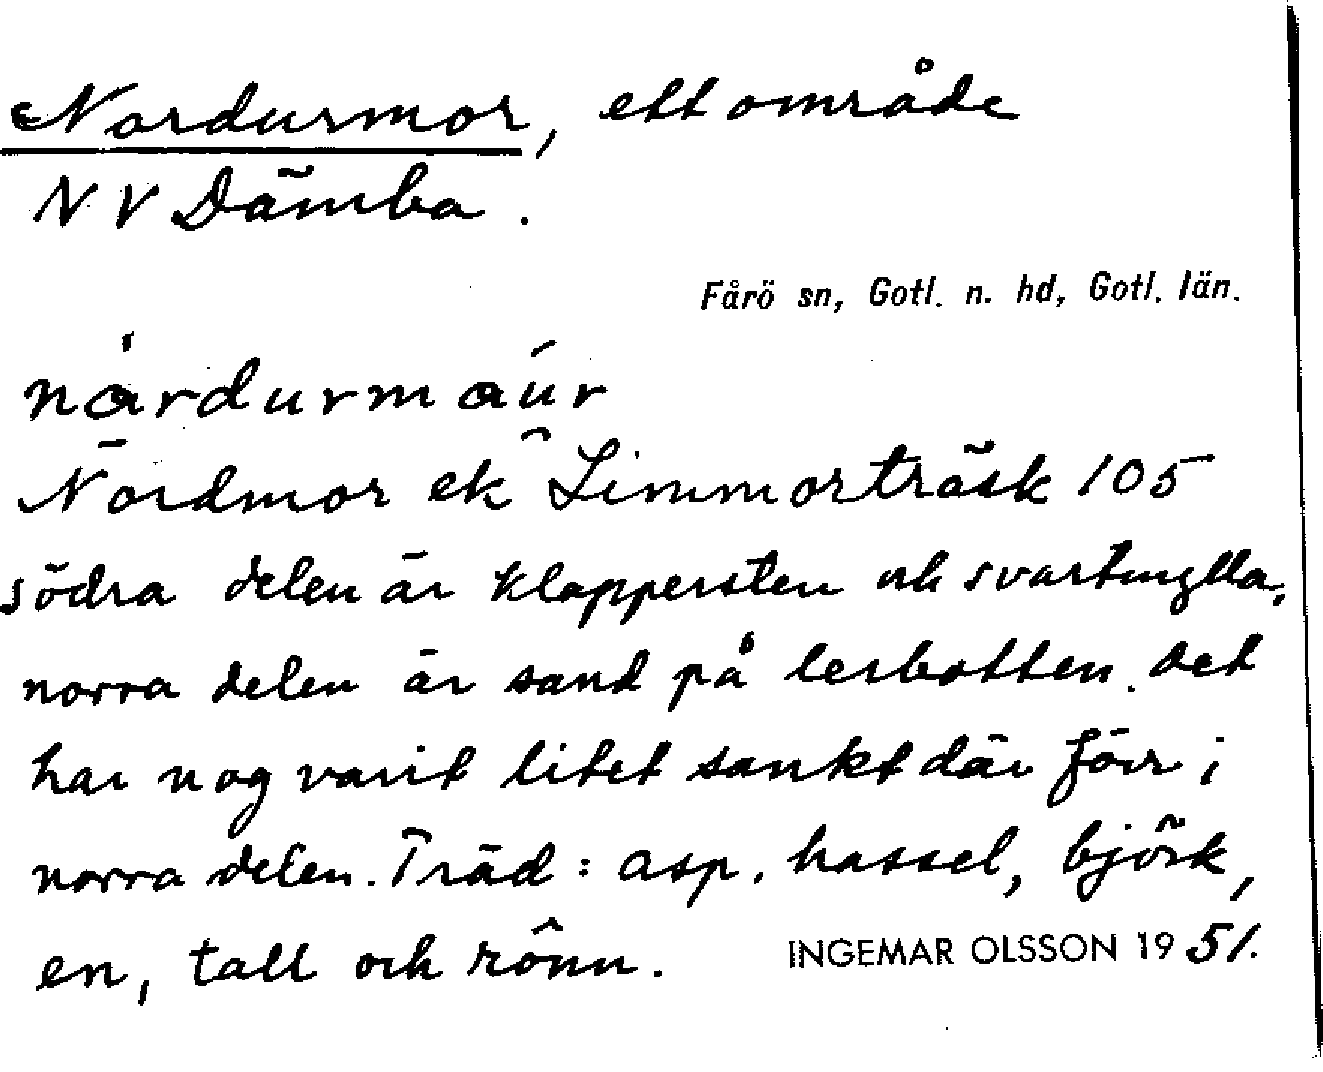 Nordurmor, ett område
N V Dämba.
Fårö sn, Gotl. n. hd, Gotl. län.
nårdurmaúr
Nordmor ek Limmorträsk 105
södra delen är klappersten och svartmylla,
norra delen är sand på lerbotten. Det
har nog varit litet sankt där förr i
norra delen. Träd: asp, hassel, björk,
en, tall och rönn.
INGEMAR OLSSON 1951.